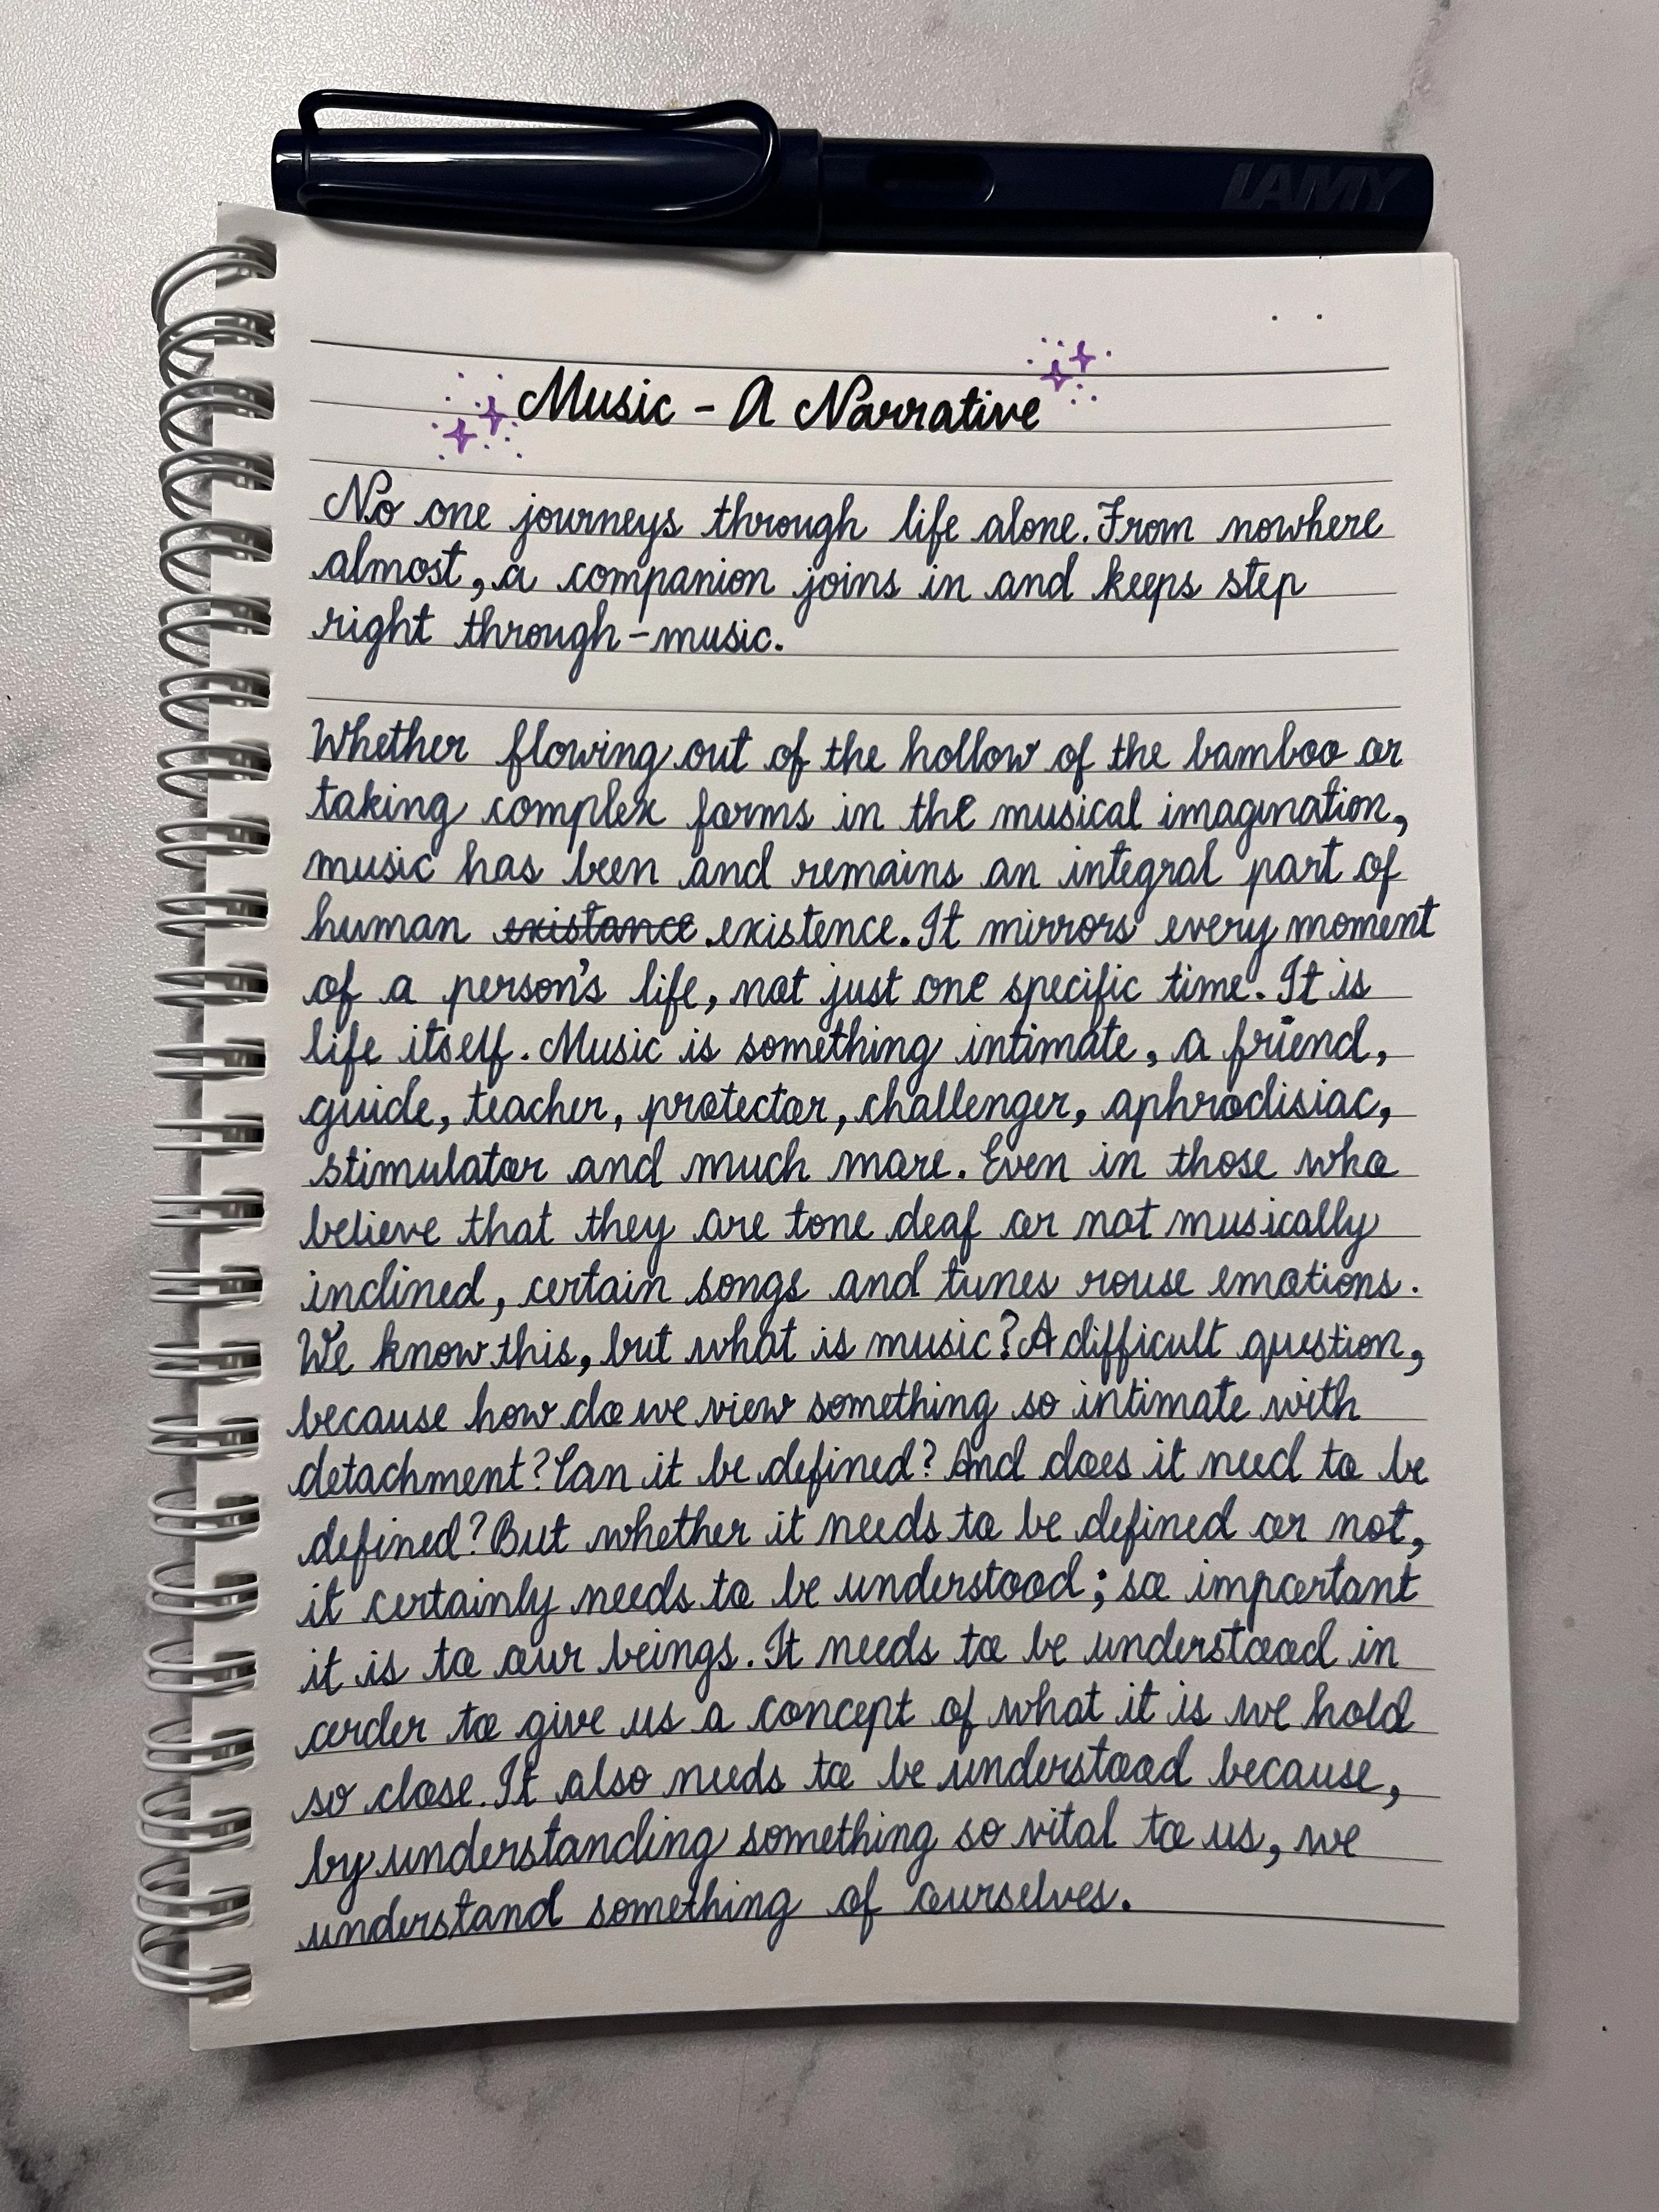 LAMY
Music - A Narrative
No one journeys through life alone. From nowhere
almost, a companion joins in and keeps step
right through - music.
Whether flowing out of the hollow of the bamboo or
taking complex forms in the musical imagination,
music has been and remains an integral part of
human existance existence. It mirrors every moment
of a person's life, not just one specific time. It is
life itself. Music is something intimate, a friend,
guide, teacher, protector, challenger, aphrodisiac,
stimulator and much more. Even in those who
believe that they are tone deaf or not musically
inclined, certain songs and tunes rouse emotions.
We know this, but what is music? A difficult question,
because how do we view something so intimate with
detachment? Can it be defined? And does it need to be
defined? But whether it needs to be defined or not,
it certainly needs to be understood; so important
it is to our beings. It needs to be understood in
order to give us a concept of what it is we hold
so close. It also needs to be understood because,
by understanding something so vital to us, we
understand something of ourselves.